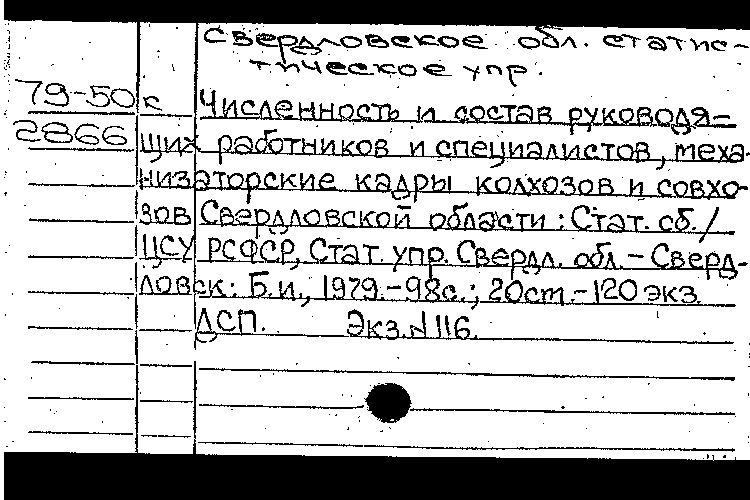 Свердловское обл. статис-
тическое упр.
79-50 к Численность и состав руководя-
2866 щих работников и специалистов, меха-
низаторские кадры колхозов и совхо-
зов Свердловской области: Стат. сб./
ЦСУ РСФСР, Стат. упр. Свердл. обл. - Сверд-
ловск: Б.и., 1979.-98с.; 20см.-120 экз.
ДСП. Экз.№116.